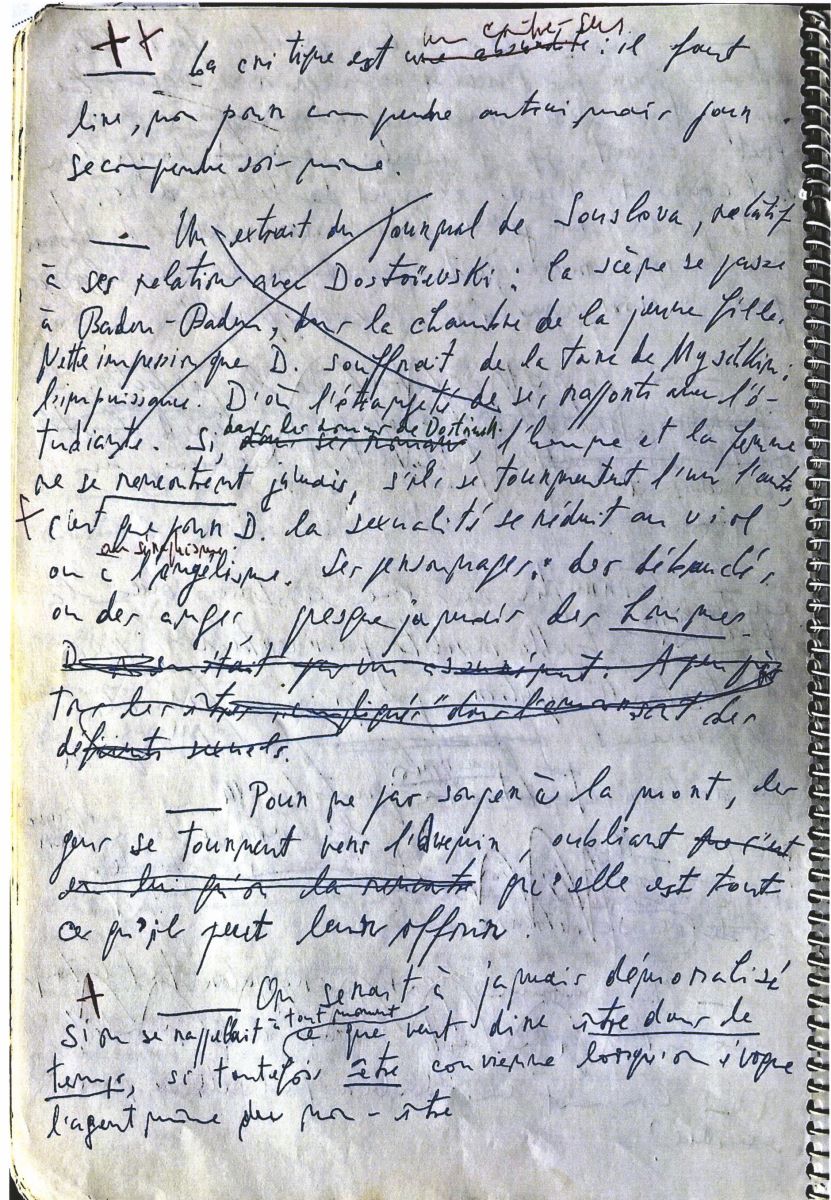 ++ La critique est un contre-sens une absurdité : il faut
lire, non pour comprendre autrui mais pour
se comprendre soi-même.
— Un extrait du Journal de Souslova, relatif
à ses relations avec Dostoïevski : la scène se passe
à Baden-Baden, dans la chambre de la jeune fille.
Nette impression que D. souffrait de la tare de Myschkin :
l'impuissance. D'où l'étrangeté de ses rapports avec l'é-
tudiante. Si, dans les romans de Dostoievski dans ses romans, l'homme et la femme
ne se rencontrent jamais, s'ils se tourmentent l'un l'autre,
+ c'est que pour D. la sexualité se réduit au viol
ou à l'angélisme. au séraphisme Ses personnages : des débauchés
ou des anges, presque jamais des hommes.
D. était par un Apu
Tous des êtres "compliqués" dans l'amour sont des
déficients sexuels.
— Pour ne pas songer à la mort, les
gens se tournent vers l'avenir, oubliant que c'est
en lui qu'on la rencontre qu'elle est tout
ce qu'il peut leur offrir.
+ — On serait à jamais démoralisé
si on se rappelait à tout moment ce que veut dire être dans le
temps, si toutefois être convienne lorsqu'on évoque
l'agent même du non-être